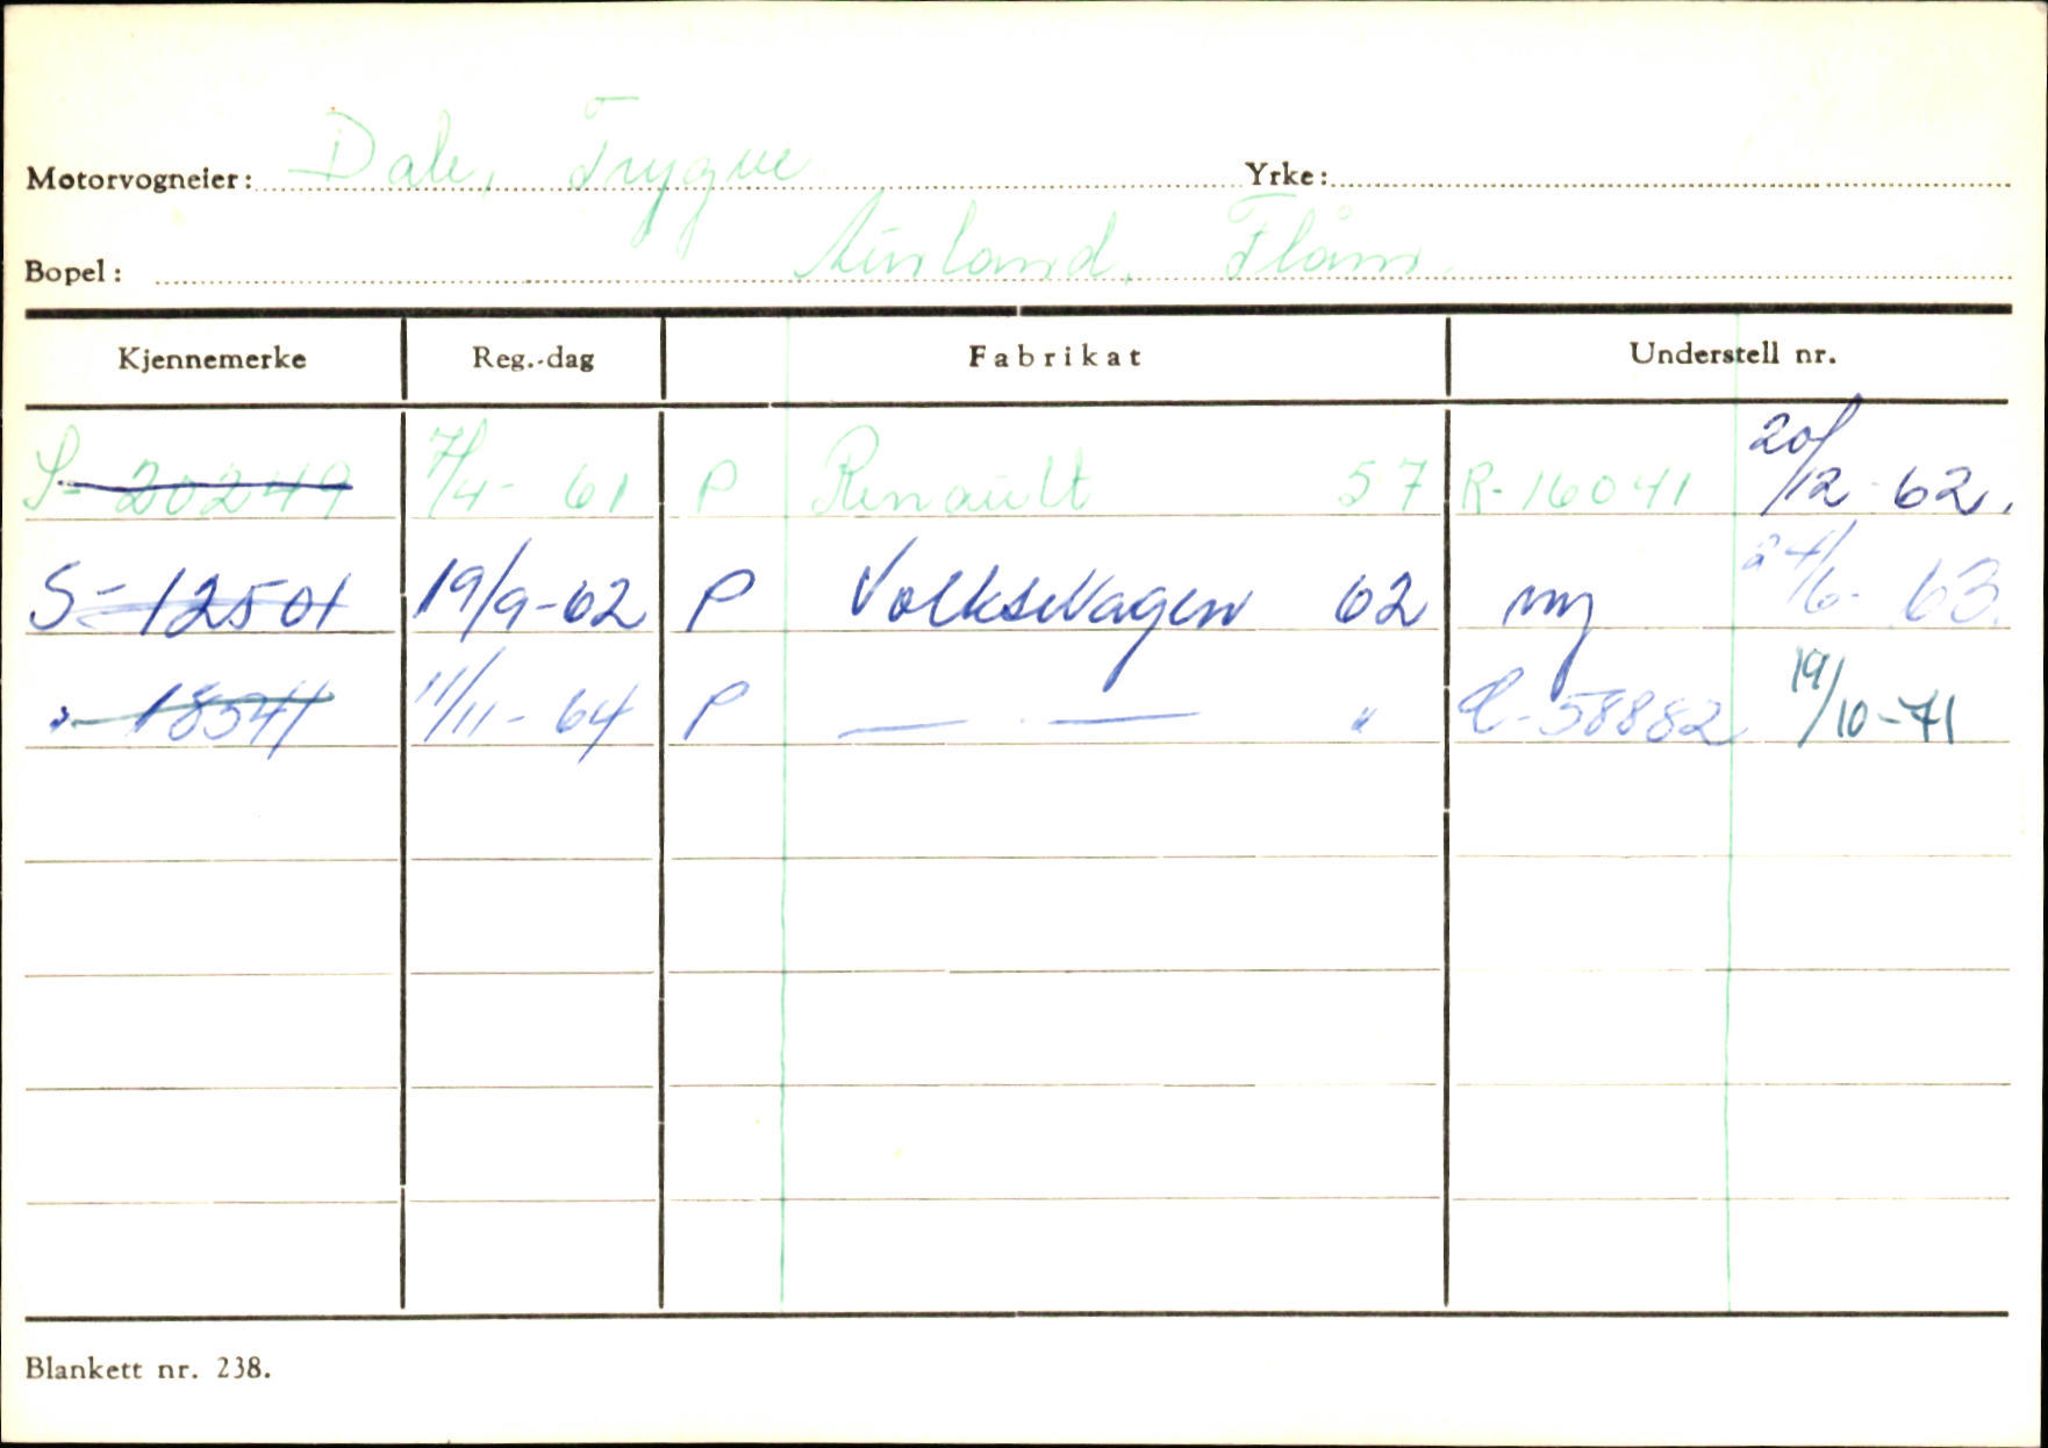 Motorvogneier: Dale, Trygve Yrke:
Bopel: Aurland, Flåm.
Kjennemerke Reg.-dag Fabrikat Understell nr.
S-20249 7/4-61 P Renault 57 R-16041 20/12-62.
S-12501 19/9-62 P Volkswagen 62 ny 24/6-63.
"-18541 11/11-64 P — . — " -58882 19/10-71
Blankett nr. 238.